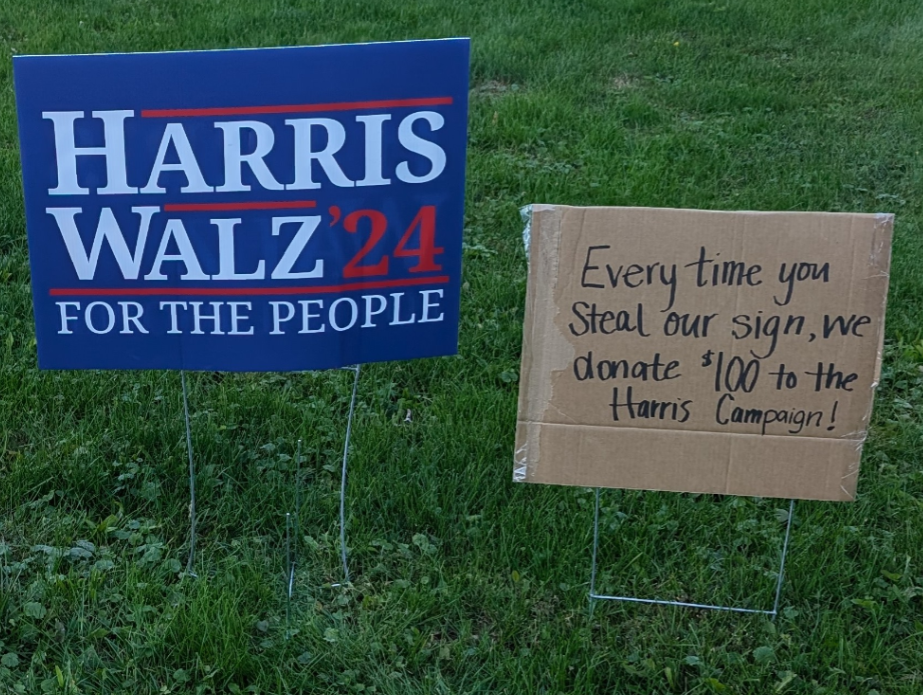 HARRIS
WALZ '24
FOR THE PEOPLE
Every time you
Steal our sign, we
donate $100 to the
Harris Campaign!